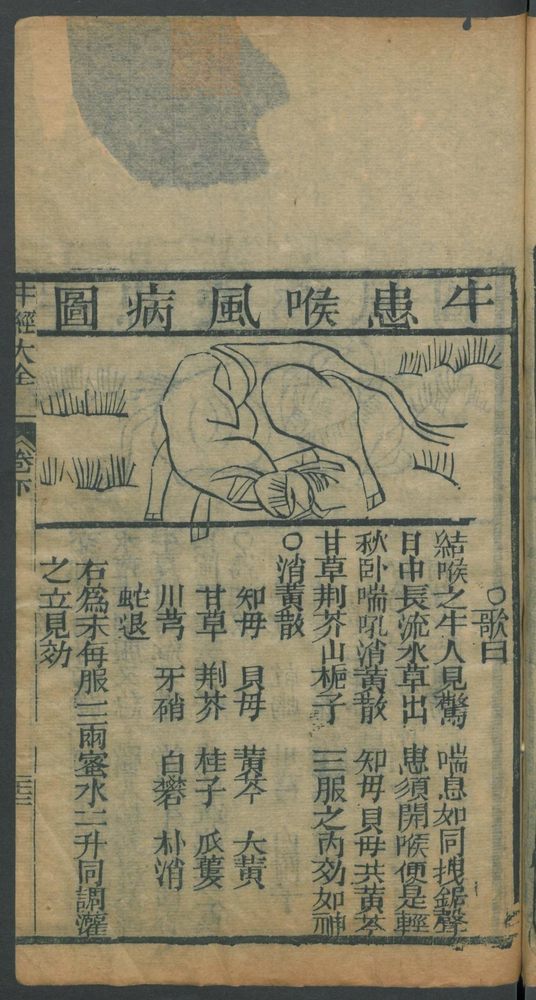 牛患喉風病圖
○歌曰
結喉之牛人見驚 喘息如同拽鋸聲
日中長流水草出 患須開喉便是輕
秋卧喘吼消黄散 知母貝母共黄芩
甘草荆芥山梔子 三服之内効如神
○消黄散
知母 貝母 黄芩 大黄
甘草 荆芥 桂子 瓜蔞
川芎 牙硝 白礬 朴消
蛇退
右爲末每服三兩蜜水二升同調灌
之立見効
牛經大全
卷下